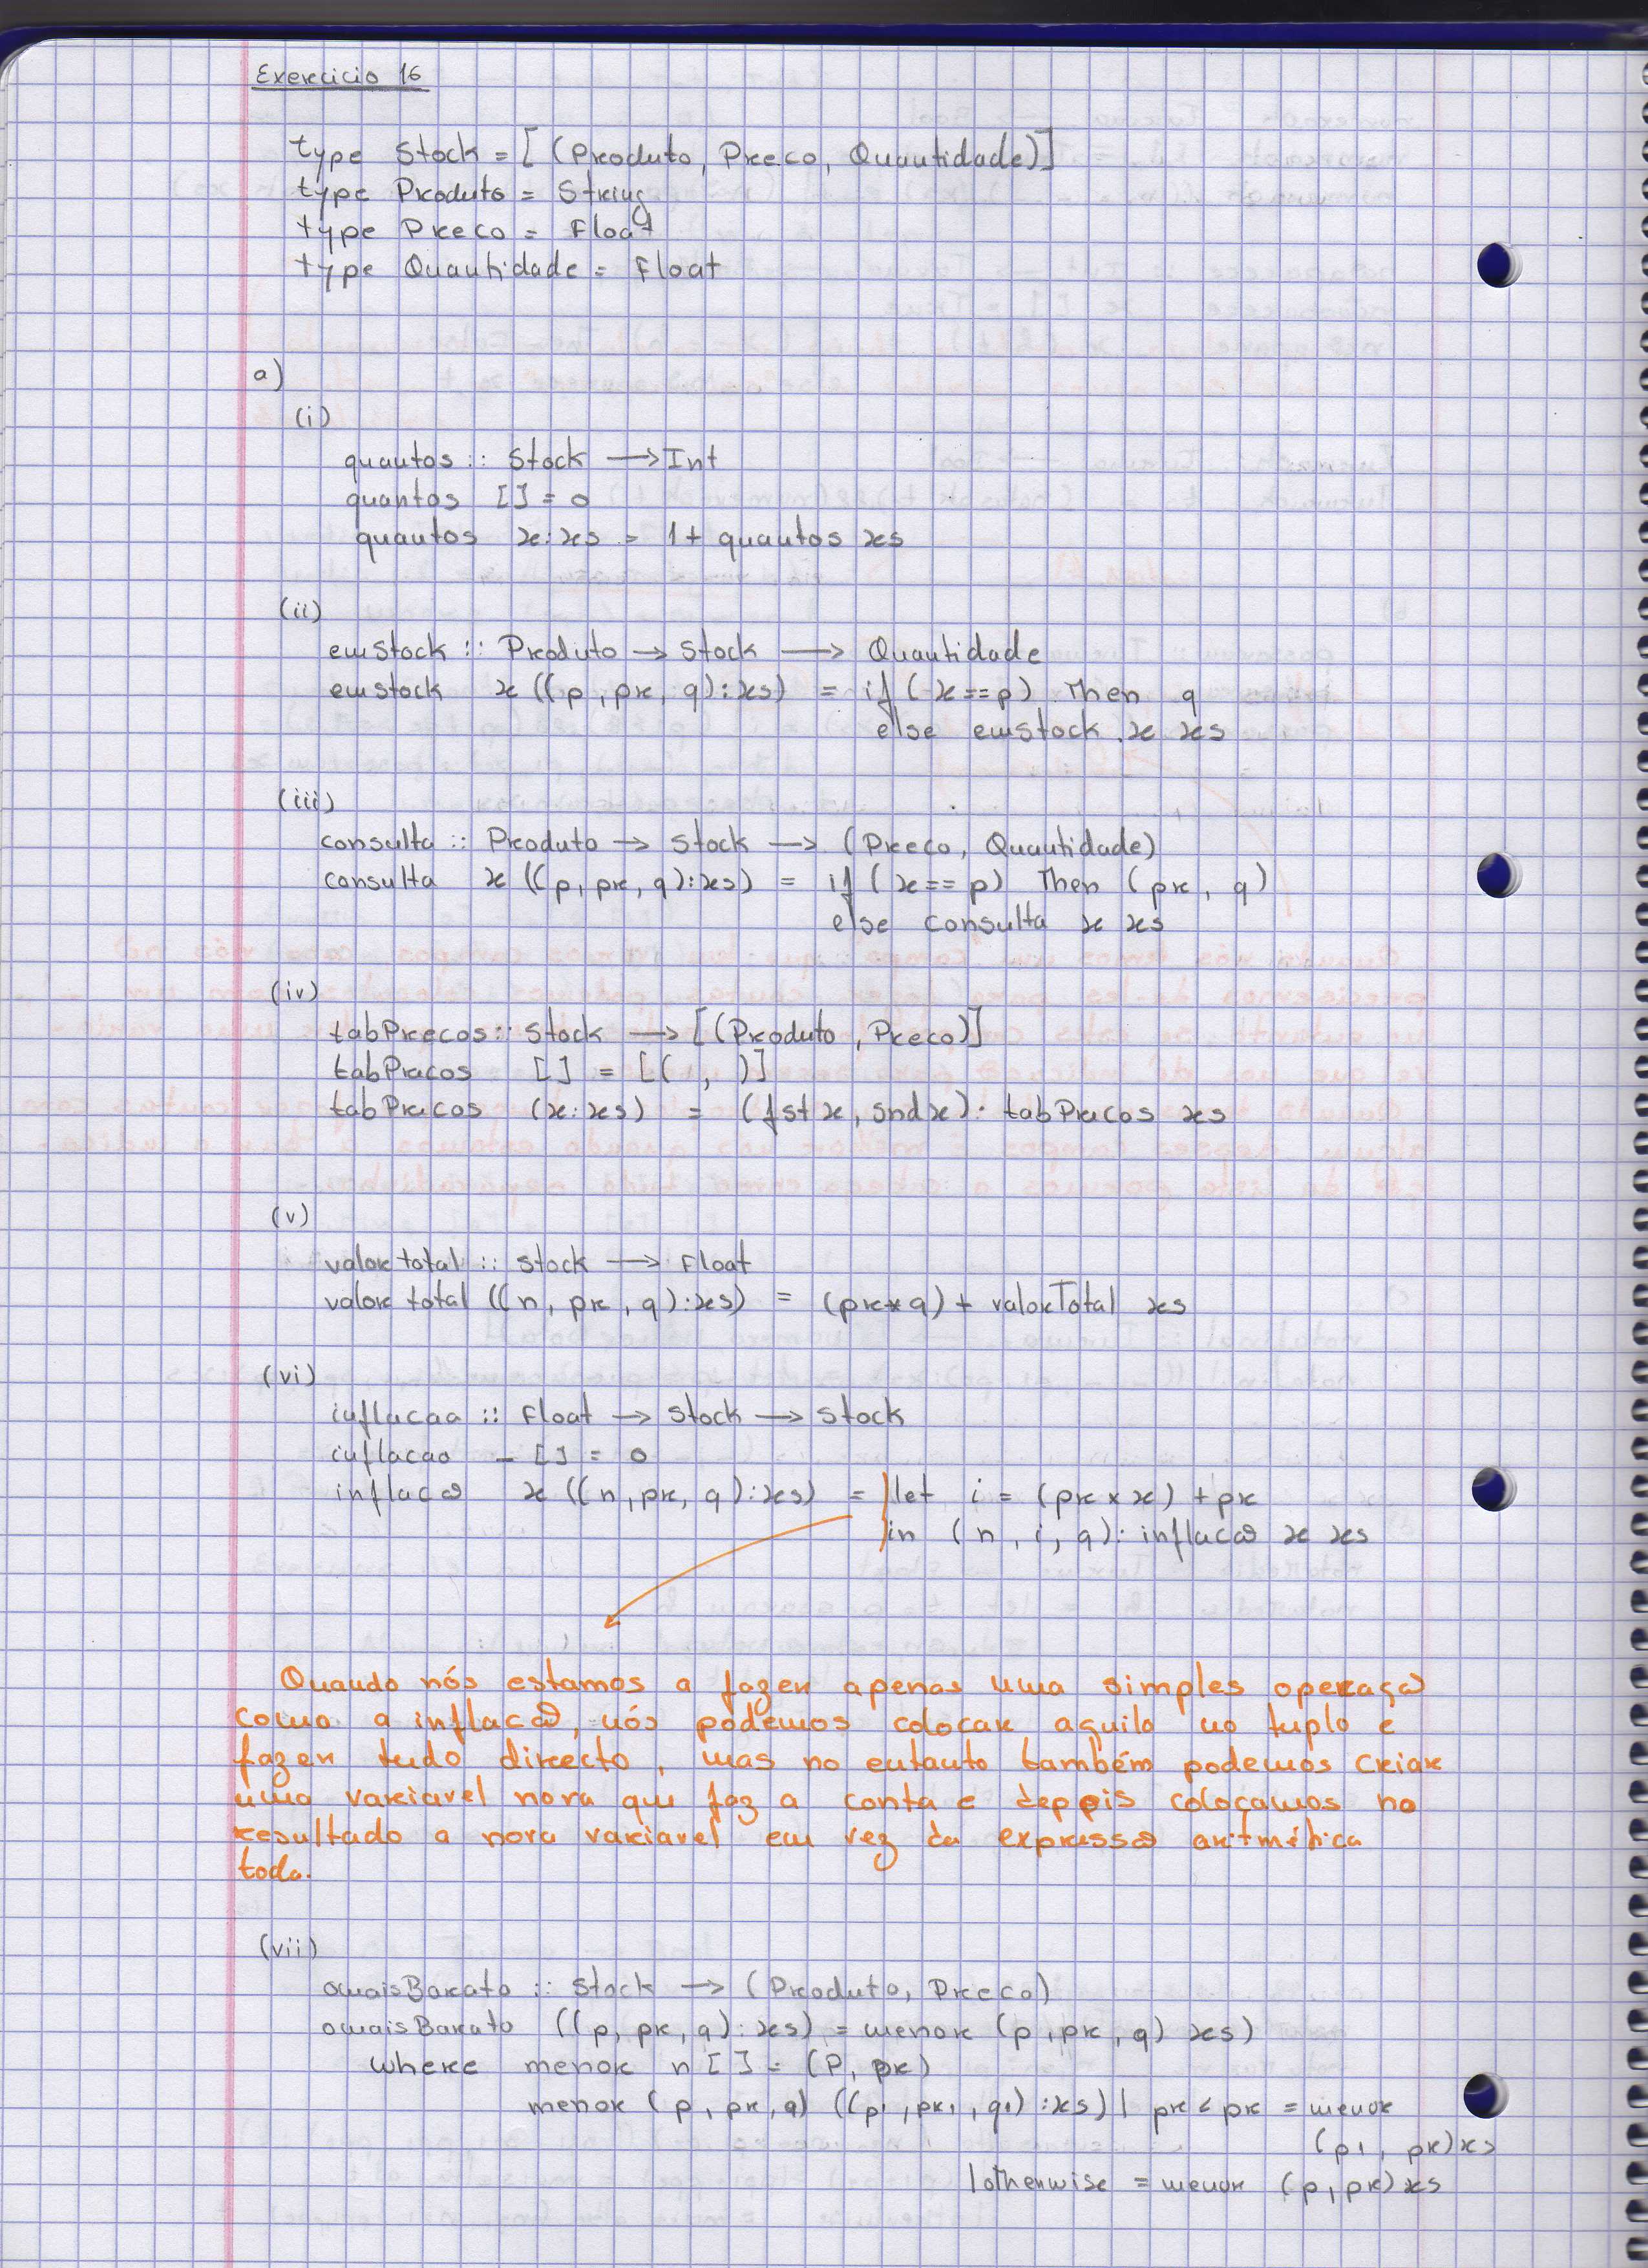 Exercicio 16
type Stock = [(Produto, Preco, Quantidade)]
type Produto = String
type Preco = Float
type Quantidade = Float
a)
(i)
quantos :: Stock → Int
quantos [] = 0
quantos x:xs = 1 + quantos xs
(ii)
emStock :: Produto → Stock → Quantidade
emstock x ((p, pr, q):xs) = if (x==p) Then q
else emStock x xs
(iii)
consulta :: Produto → Stock → (Preco, Quantidade)
consulta x ((p, pr, q):xs) = if (x==p) Then (pr, q)
else consulta x xs
(iv)
tabPrecos :: Stock → [(Produto, Preco)]
tabPrecos [] = [( , )]
tabPrecos (x:xs) = (fst x, snd x): tabPrecos xs
(v)
valor total :: Stock → Float
valor total ((n, pr, q):xs) = (pr*q) + valorTotal xs
(vi)
inflacao :: Float → Stock → Stock
inflacao _ [] = 0
inflacao x ((n, pr, q):xs) = let i = (pr x x) + pr
in (n, i, q): inflacao x xs
Quando nós estamos a fazer apenas uma simples operaçao
como a inflacao, nós podemos colocar aquilo no tuplo e
fazer tudo directo, mas no entanto também podemos criar
uma variavel nova que faz a conta e depois colocamos no
resultado a nova variavel em vez da expressao aritmética
toda.
(vii)
omaisBarato :: Stock → (Produto, Preco)
omaisBarato ((p, pr, q):xs) = menor (p, pr, q) xs)
where menor n [] = (P, pr)
menor (p, pr, q) ((p1, pr1, q1):xs) | pr < pr = menor
(p1, pr) xs
|otherwise = menor (p, pr) xs